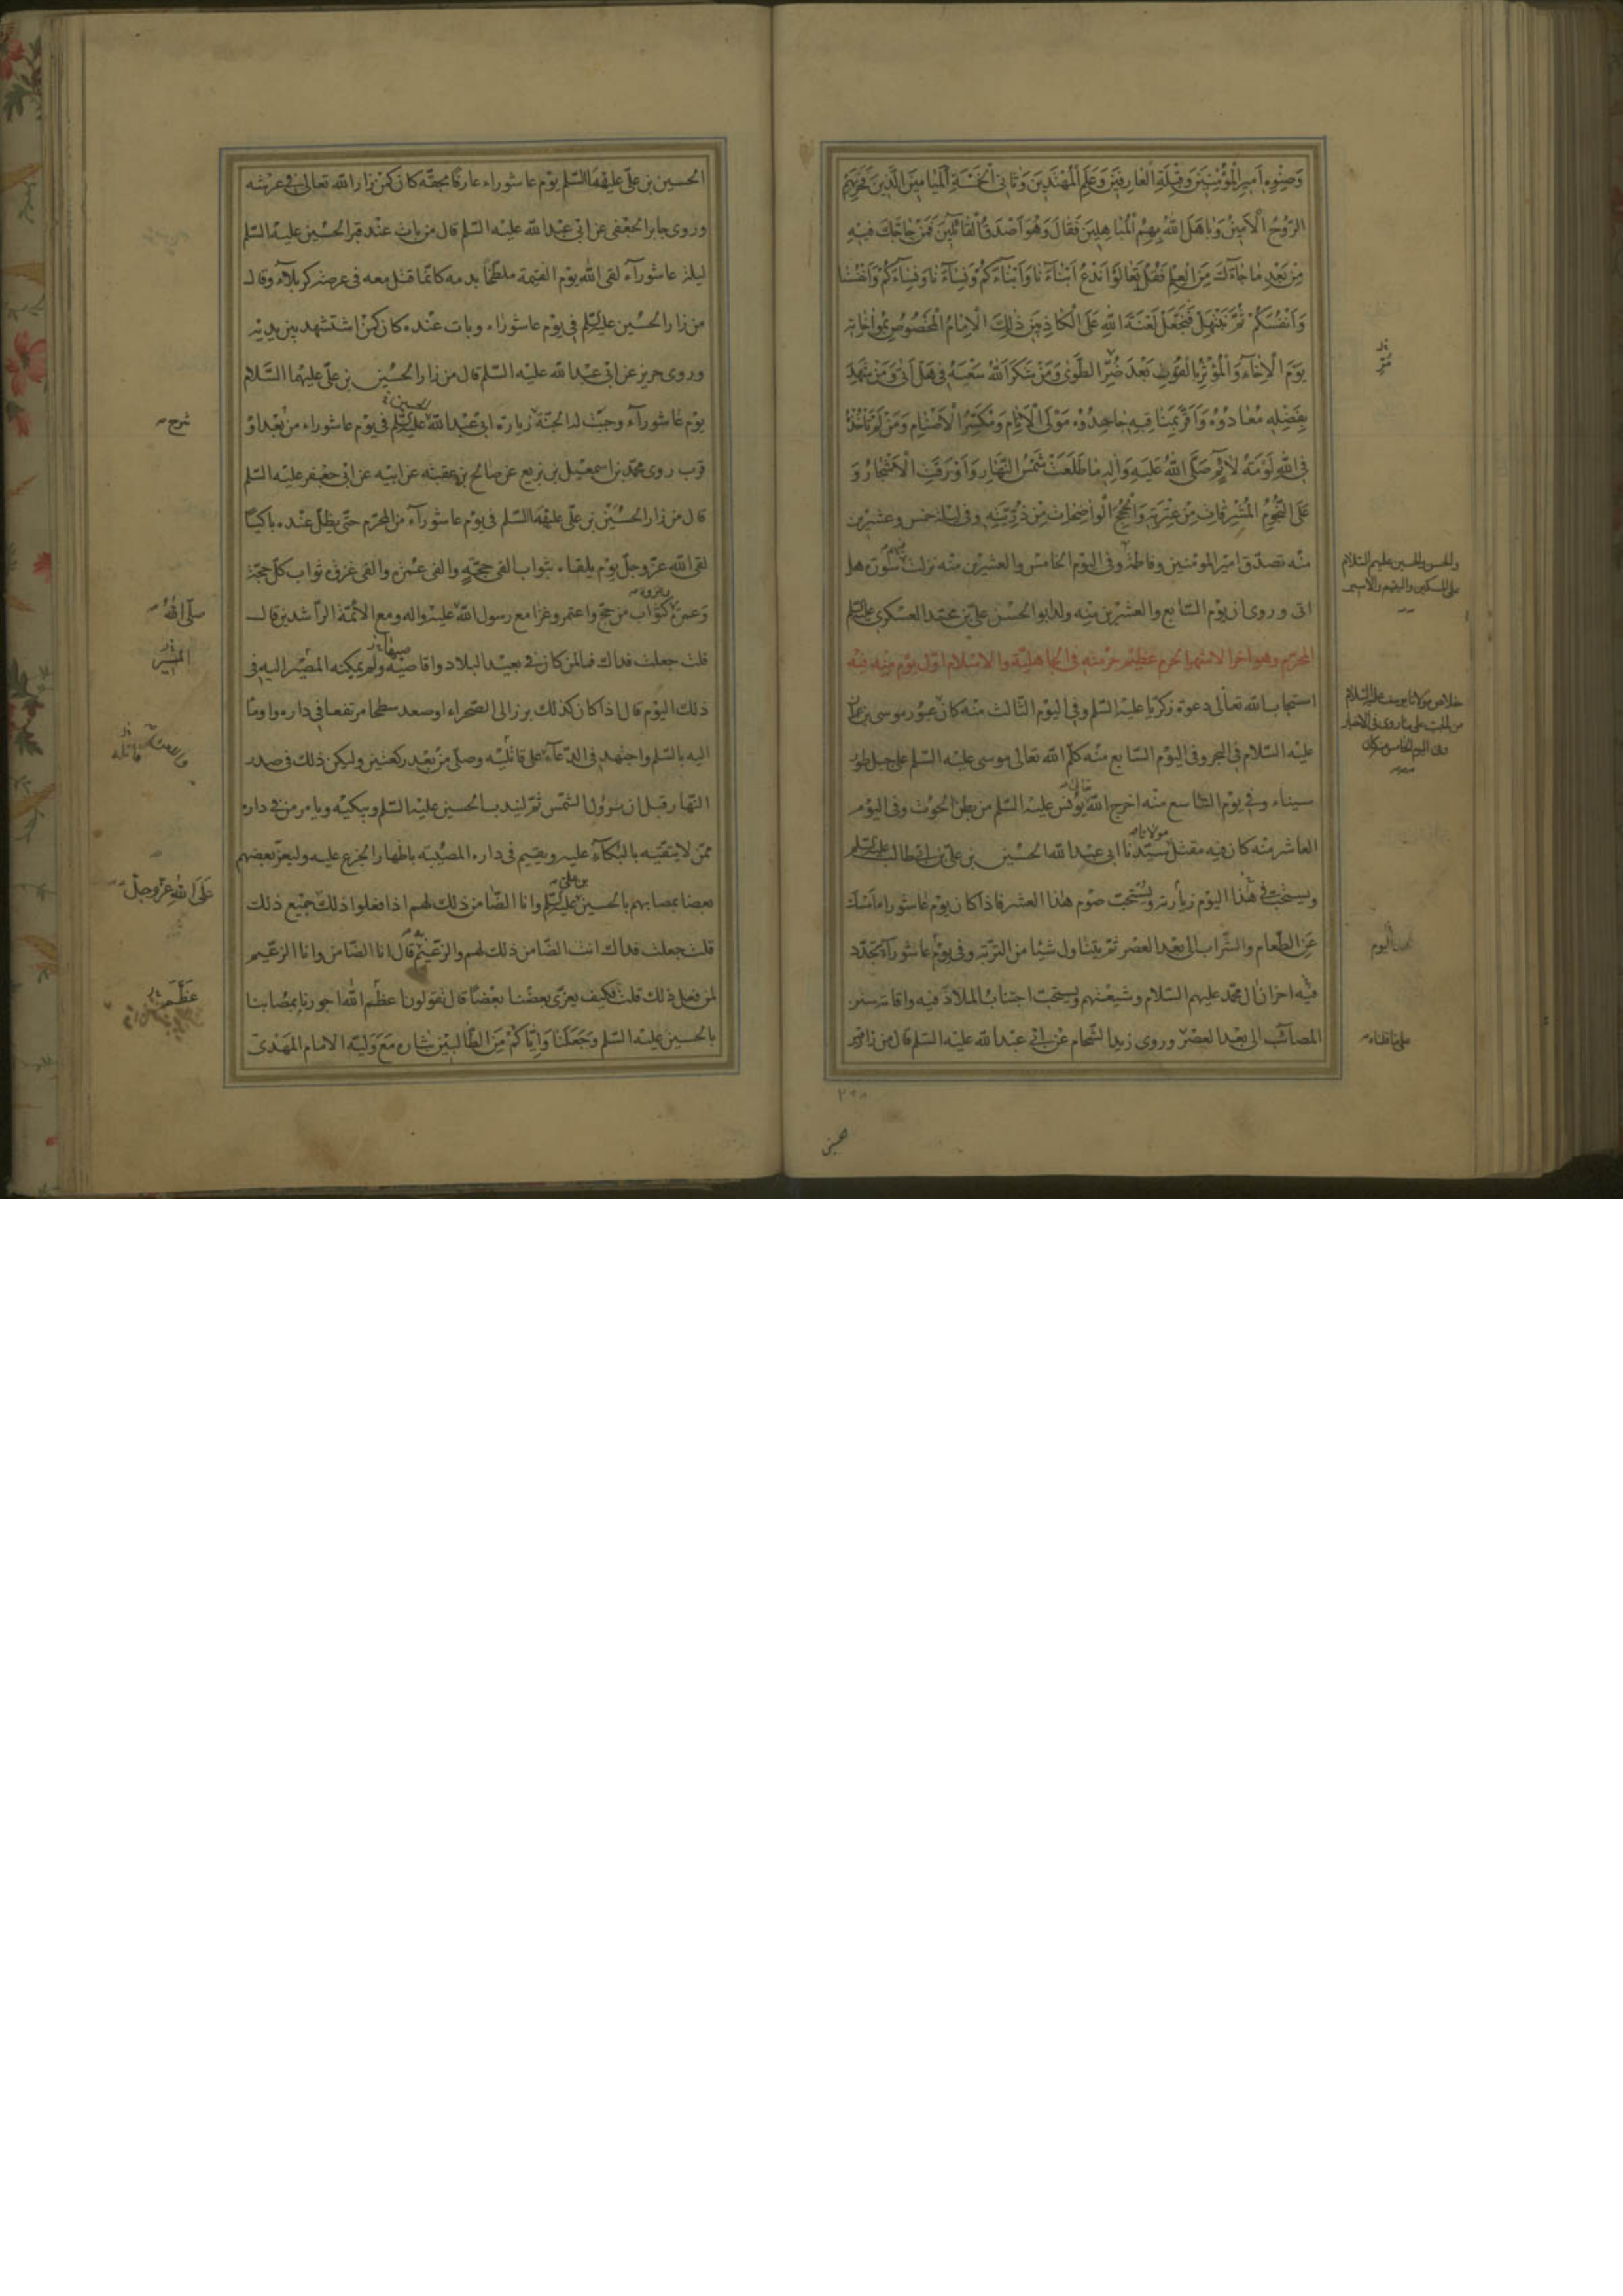 وَصِنْوِهِ أَمِيرِ الْمُؤْمِنِينَ وَقِبْلَةِ الْعَارِفِينَ وَعَلَمِ الْمُهْتَدِينَ وَثَانِي الْخَمْسَةِ الْمَيَامِينَ الَّذِينَ فَخَرَ بِهِمُ
الرُّوحُ الْأَمِينُ وَبَاهَلَ اللهُ بِهِمُ الْمُبَاهِلِينَ فَقَالَ وَهُوَ أَصْدَقُ الْقَائِلِينَ فَمَنْ حَاجَّكَ فِيهِ
مِنْ بَعْدِ مَا جَاءَكَ مِنَ الْعِلْمِ فَقُلْ تَعَالَوْا نَدْعُ أَبْنَاءَنَا وَأَبْنَاءَكُمْ وَنِسَاءَنَا وَنِسَاءَكُمْ وَأَنْفُسَنَا
وَأَنْفُسَكُمْ ثُمَّ نَبْتَهِلْ فَنَجْعَلْ لَعْنَةَ اللهِ عَلَى الْكَاذِبِينَ ذَلِكَ الْإِمَامُ الْمَخْصُوصُ بِمُوَاخَاتِهِ
يَوْمَ الْإِخَاءِ وَالْمُؤْثِرُ بِالْقُوتِ بَعْدَ ضُرِّ الطَّوَى وَمَنْ شَكَرَ اللهُ سَعْيَهُ فِي هَلْ أَتَى وَمَنْ شَهِدَ
بِفَضْلِهِ مُعَادُوهُ وَأَقَرَّ بِمَنَاقِبِهِ جَاحِدُوهُ مَوْلَى الْأَنَامِ وَمُكَسِّرُ الْأَصْنَامِ وَمَنْ لَمْ تَأْخُذْهُ
فِي اللهِ لَوْمَةُ لَائِمٍ صَلَّى اللهُ عَلَيْهِ وَآلِهِ مَا طَلَعَتْ شَمْسُ النَّهَارِ وَأَوْرَقَتِ الْأَشْجَارُ وَ
عَلَى النُّجُومِ الْمُشْرِقَاتِ مِنْ عِتْرَتِهِ وَالْحُجَجِ الْوَاضِحَاتِ مِنْ ذُرِّيَّتِهِ وفى ليلة خمس وعشرين
منه تصدّق امير المؤمنين وفاطمة وفى اليوم الخامس والعشرين منه نزلت فيهم سورة هل
والحسن والحسين عليهم السّلام
على المسكين واليتيم والاسير
اتى وروى ان يوم السّابع والعشرين منه ولد ابو الحسن علىّ بن محمّد العسكرى عليه السلم
المحرّم وهو اخر الاشهر الحرم عظيم حرمته فى الجاهليّة والاسلام اوّل يوم منه فيه
استجاب الله تعالى دعوة زكريّا عليه السّلم وفى اليوم الثّالث منه كان عبور موسى بن عمران
خلاص مولانا يوسف عليه السّلام
من الجبّ على ما روى فى الاخبار
وفى اليوم الخامس منه كان
عليه السّلام فى البحر وفى اليوم السّابع منه كلّم الله تعالى موسى عليه السّلم على جبل طور
سيناء وفى يوم التّاسع منه اخرج الله تعالى يونس عليه السّلم من بطن الحوت وفى اليوم
العاشر منه كان فيه مقتل مولانا سيّدنا ابى عبد الله الحسين بن علىّ بن ابى طالب عليه السلم
ويستحبّ فى هذا اليوم زيارته ويستحبّ صوم هذا العشر فاذا كان يوم عاشورا امسك
عن الطّعام والشّراب الى بعد العصر ثمّ يتناول شيئا من التّربة وفى يوم عاشوراء يتجدّد
فيه احزان ال محمّد عليهم السّلام وشيعتهم ويستحبّ اجتناب الملاذّ فيه واقامة سنن
المصائب الى بعد العصر وروى زيد الشّحام عن ابى عبد الله عليه السّلم قال من زار قبر
على ما قلناه
الحسين بن علىّ عليهما السّلم يوم عاشوراء عارفا بحقّه كان كمن زار الله تعالى فى عرشه
وروى جابر الجعفى عن ابى عبد الله عليه السّلم قال من بات عند قبر الحسين عليه السّلم
ليلة عاشوراء لقى الله يوم القيمة ملطّخا بدمه كانّما قتل معه فى عرصة كربلاء وقال
من زار الحسين عليه السلم فى يوم عاشوراء وبات عنده كان كمن استشهد بين يديه
وروى حريز عن ابى عبد الله عليه السّلم قال من زار الحسين بن علىّ عليهما السّلام
يوم عاشوراء وجبت له الجنّة زيارة ابى عبد الله الحسين عليه السلم فى يوم عاشوراء من بعد او
شرح
قرب روى محمّد بن اسمعيل بن بزيع عن صالح بن عقبة عن ابيه عن ابى جعفر عليه السّلم
قال من زار الحسين بن علىّ عليهما السّلم فى يوم عاشوراء من المحرّم حتّى يظلّ عنده باكيا
لقى الله عزّ وجلّ يوم يلقاه بثواب الفى حجّة والفى عمرة والفى غزوة ثواب كلّ حجّة
وعمرة وغزوة كثواب من حجّ واعتمر وغزا مع رسول الله عليه واله ومع الائمّة الرّاشدين قال
صلّى الله
قلت جعلت فداك فما لمن كان فى بعيد البلاد واقاصيه ولم يمكنه المصير اليه فى
المسير
ذلك اليوم قال اذا كان كذلك برز الى الصّحراء او صعد سطحا مرتفعا فى داره واومأ
اليه بالسّلم واجتهد فى الدّعاء على قاتليه وصلّى من بعد ركعتين وليكن ذلك فى صدر
النّهار قبل ان تزول الشّمس ثمّ ليندب الحسين عليه السّلم ويبكيه ويامر من فى داره
ممّن لا يتّقيه بالبكاء عليه ويقيم فى داره المصيبة باظهار الجزع عليه وليعزّ بعضهم
بعضا بمصابهم بالحسين بن على عليه السلم وانا الضّامن ذلك لهم اذا فعلوا ذلك جميع ذلك
على الله عزّ وجلّ
قلت جعلت فداك انت الضّامن ذلك لهم والزّعيم قال انا الضّامن وانا الزّعيم
لمن فعل ذلك قلت فكيف يعزّى بعضنا بعضا قال تقولون عظّم الله اجورنا بمصابنا
عظّم
بالحسين عليه السّلم وَجَعَلَنَا وَإِيَّاكُمْ مِنَ الطَّالِبِينَ بثاره مَعَ وَلِيّه الامام المهدىّ